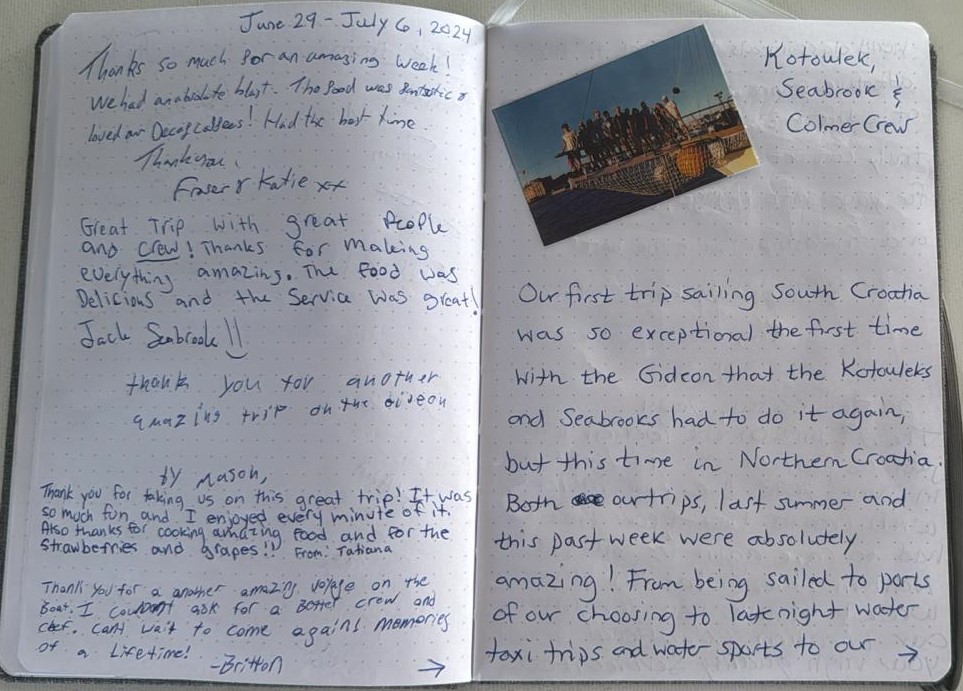 June 29 - July 6, 2024
Thanks so much for an amazing week!
We had an absolute blast. The food was fantastic &
loved our Decaf coffees! Had the best time.
Thank you,
Fraser & Katie xx
Great Trip with great People
and crew! Thanks for making
everything amazing. The food was
Delicious and the Service was great!
Jack Seabrook
thank you for another
amazing trip on the gideon
by Mason,
Thank you for taking us on this great trip! It was
so much fun and I enjoyed every minute of it.
Also thanks for cooking amazing food and for the
strawberries and grapes!! From: Tatiana
Thank you for a another amazing voyage on the
Boat. I couldn't ask for a Better crew and
chef. Cant wait to come again! Memories
of a Lifetime!
-Britton
→
Kotoulek,
Seabrook &
Colmer Crew
Our first trip sailing South Croatia
was so exceptional the first time
with the Gideon that the Kotouleks
and Seabrooks had to do it again,
but this time in Northern Croatia.
Both our trips, last summer and
this past week were absolutely
amazing! From being sailed to ports
of our choosing to late night water
taxi trips and water sports to our →